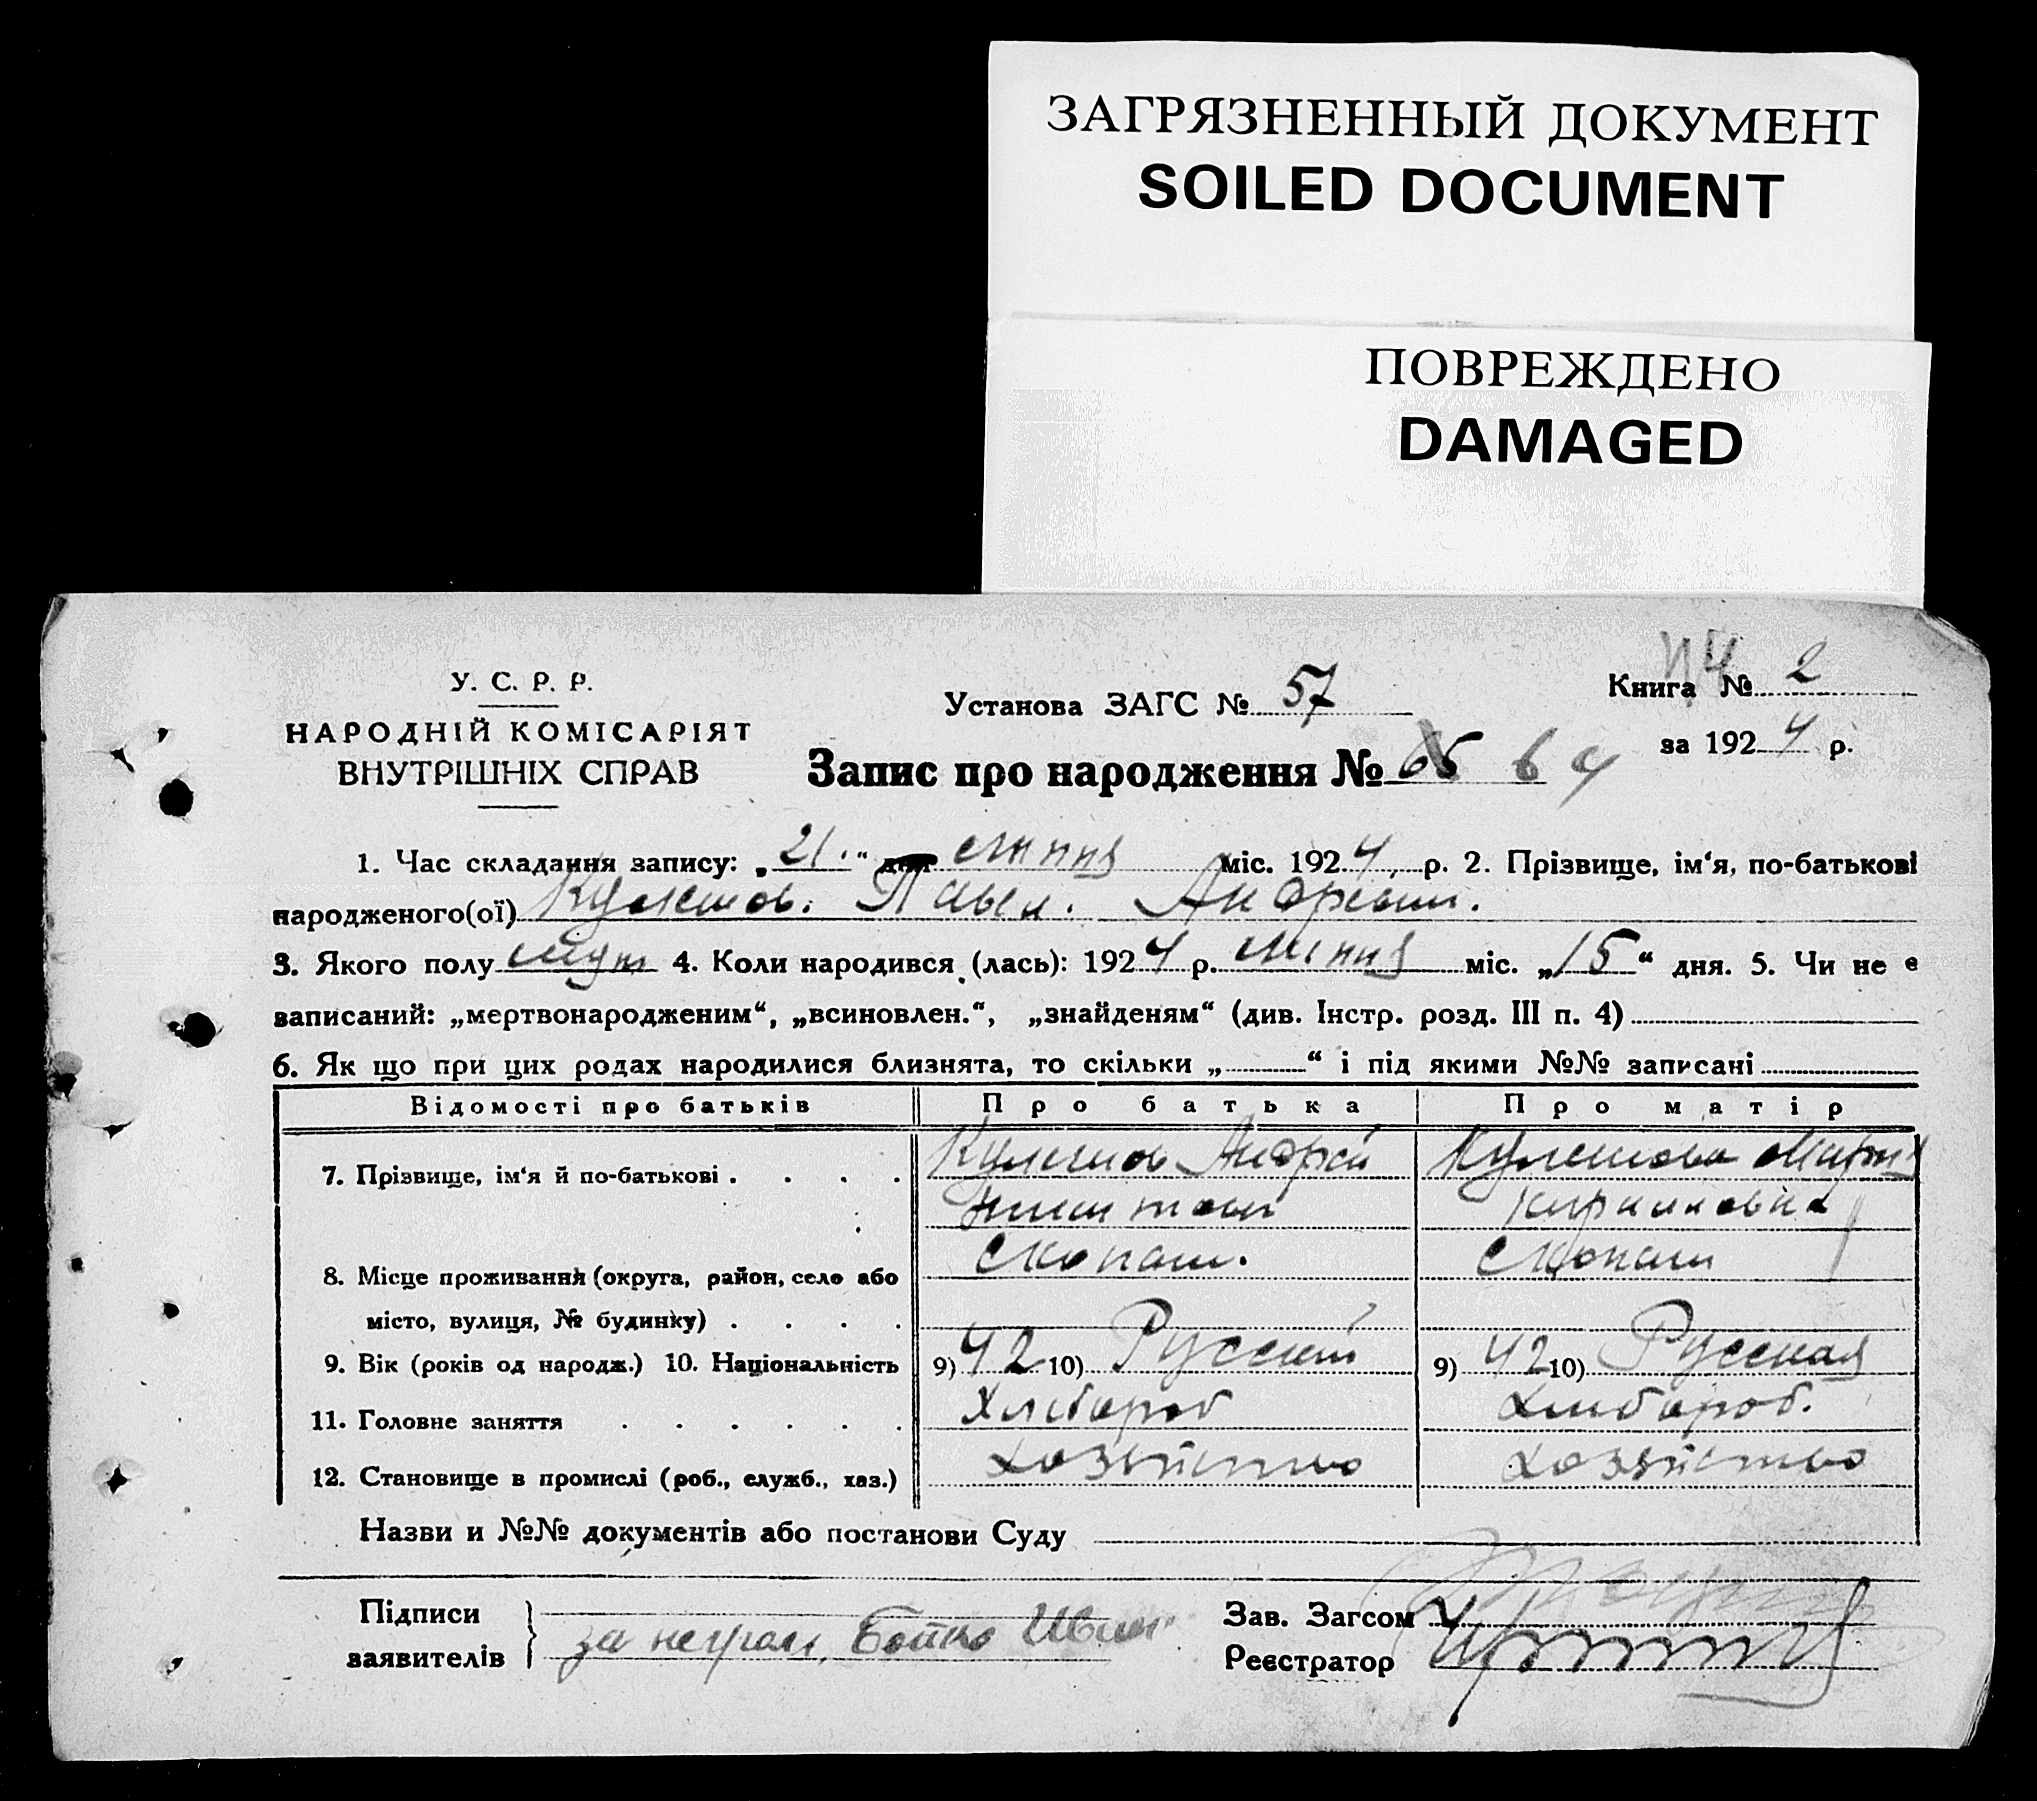 ЗАГРЯЗНЕННЫЙ ДОКУМЕНТ
SOILED DOCUMENT
ПОВРЕЖДЕНО
DAMAGED
У. С. Р. Р.
НАРОДНІЙ КОМІСАРІЯТ
ВНУТРІШНІХ СПРАВ
Установа ЗАГС № 57
Книга № 2
за 1924 р.
Запис про народження № 64
1. Час складання запису: „21." дня липня міс. 1924 р. 2. Прізвище, ім'я, по-батькові
народженого(ої) Кулешов. Павел. Андреевич.
3. Якого полу муж 4. Коли народився (лась): 1924 р. липня міс. „15" дня. 5. Чи не є
записаний: „мертвонародженим", „всиновлен.", „знайденям" (див. Інстр. розд. III п. 4)
6. Як що при цих родах народилися близнята, то скільки „ " і під якими №№ записані
Відомості про батьків Про батька Про матір
7. Прізвище, ім'я й по-батькові . . . . Кулешов Андрей Кулешова Мария
Кириловна
8. Місце проживання (округа, район, село або
місто, вулиця, № будинку) . . . .
9. Вік (років од народж.) 10. Національність 9) 42 10) Русский 9) 42 10) Русская
11. Головне заняття . . . . . . Хлібороб Хлібороб.
12. Становище в промислі (роб., служб., хаз.) хозяйство хозяйство
Назви и №№ документів або постанови Суду
Підписи
заявителів
за неграм. Бойко Иван
Зав. Загсом
Реєстратор